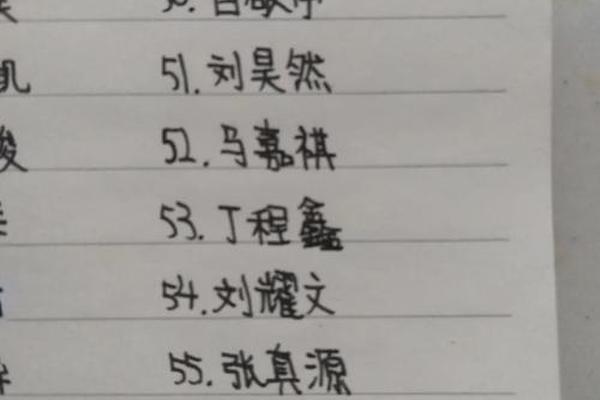 51.刘昊然
52.马嘉祺
53.丁程鑫
54.刘耀文
55.张真源